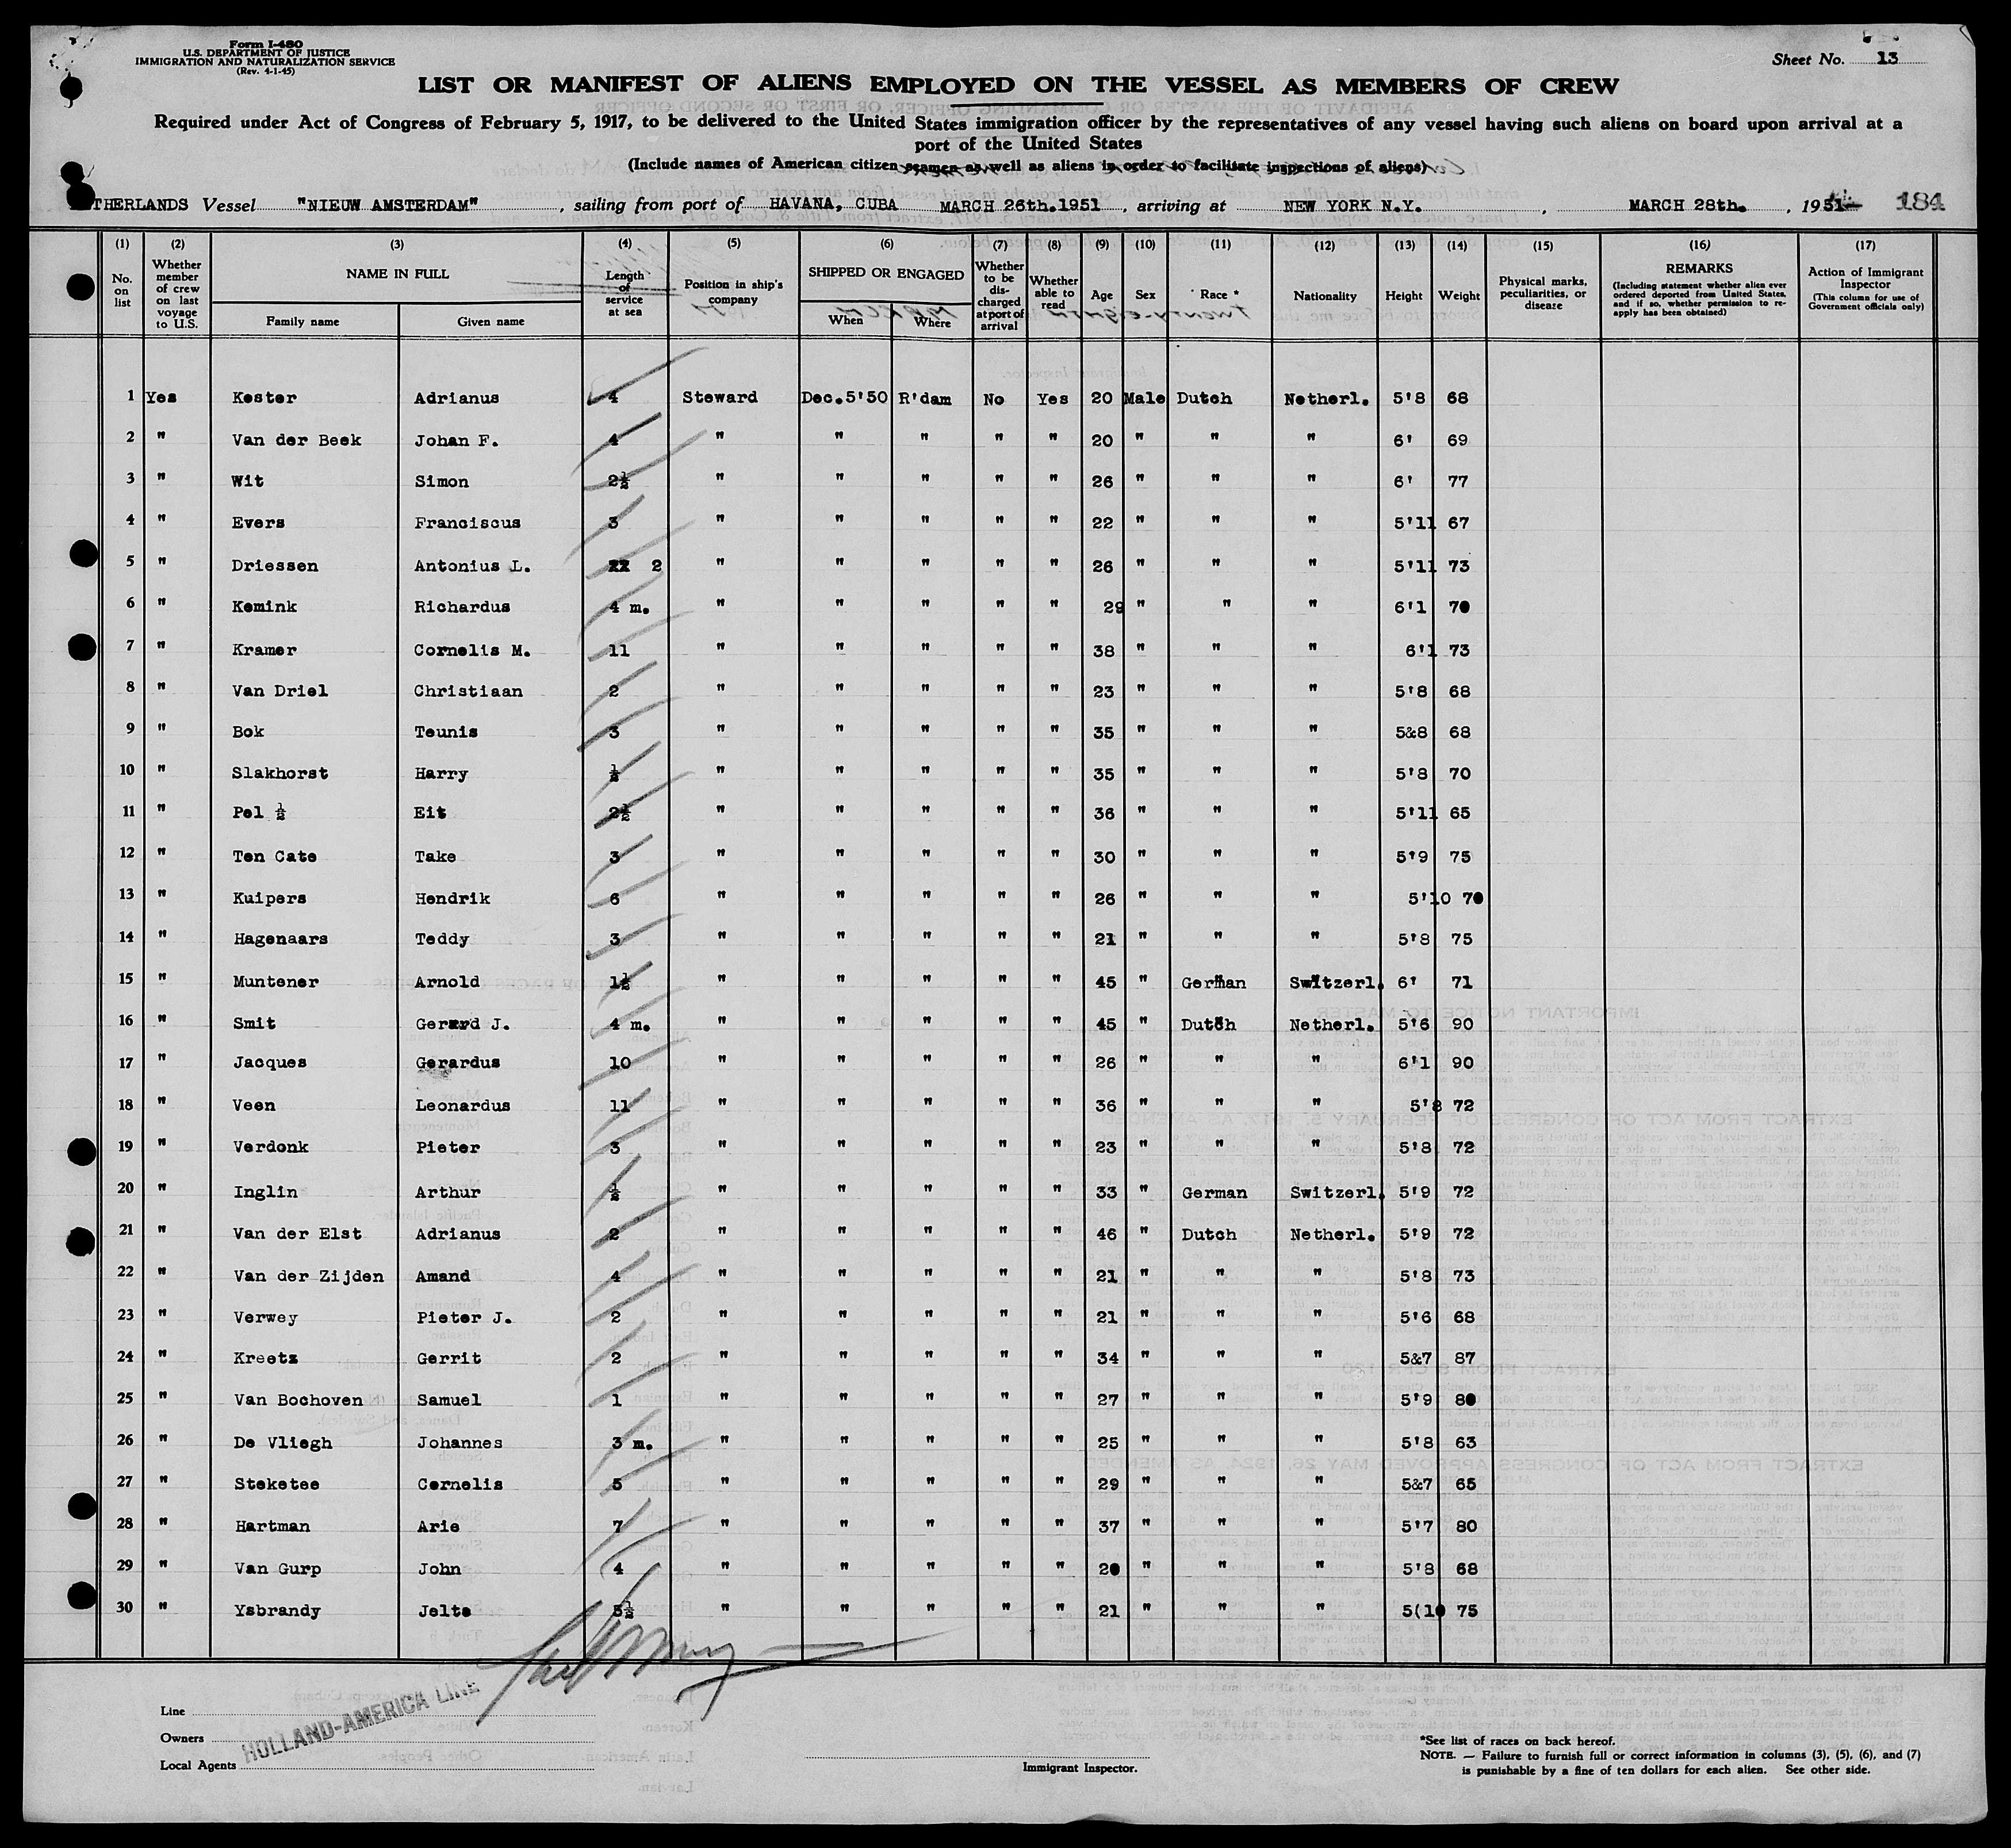 Form I-480
U.S. DEPARTMENT OF JUSTICE
IMMIGRATION AND NATURALIZATION SERVICE
(Rev. 4-1-45)
Sheet No. 13
LIST OR MANIFEST OF ALIENS EMPLOYED ON THE VESSEL AS MEMBERS OF CREW
Required under Act of Congress of February 5, 1917, to be delivered to the United States immigration officer by the representatives of any vessel having such aliens on board upon arrival at a
port of the United States
(Include names of American citizen seamen as well as aliens in order to facilitate inspections of aliens)
THERLANDS Vessel "NIEUW AMSTERDAM", sailing from port of HAVANA, CUBA MARCH 26th.1951, arriving at NEW YORK N.Y., MARCH 28th., 1951 184
(1) (2) (3) (4) (5) (6) (7) (8) (9) (10) (11) (12) (13) (14) (15) (16) (17)
No. on list Whether member of crew on last voyage to U.S. NAME IN FULL Family name Given name Length of service at sea Position in ship's company SHIPPED OR ENGAGED When Where Whether to be discharged at port of arrival Whether able to read Age Sex Race * Nationality Height Weight Physical marks, peculiarities, or disease REMARKS (Including statement whether alien ever ordered deported from United States, and if so, whether permission to re-apply has been obtained) Action of Immigrant Inspector (This column for use of Government officials only)
1 Yes Kester Adrianus 4 Steward Dec.5'50 R'dam No Yes 20 Male Dutch Netherl. 5'8 68
2 " Van der Beek Johan F. 4 " " " " " 20 " " " 6' 69
3 " Wit Simon 2½ " " " " " 26 " " " 6' 77
4 " Evers Franciscus 3 " " " " " 22 " " " 5'11 67
5 " Driessen Antonius L. 2 " " " " " 26 " " " 5'11 73
6 " Kemink Richardus 4 m. " " " " " 29 " " " 6'1 70
7 " Kramer Cornelis M. 11 " " " " " 38 " " " 6'1 73
8 " Van Driel Christiaan 2 " " " " " 23 " " " 5'8 68
9 " Bok Teunis 3 " " " " " 35 " " " 5&8 68
10 " Slakhorst Harry ½ " " " " " 35 " " " 5'8 70
11 " Pel ½ Eit 2½ " " " " " 36 " " " 5'11 65
12 " Ten Cate Take 3 " " " " " 30 " " " 5'9 75
13 " Kuipers Hendrik 6 " " " " " 26 " " " 5'10 70
14 " Hagenaars Teddy 3 " " " " " 21 " " " 5'8 75
15 " Muntener Arnold 1½ " " " " " 45 " German Switzerl. 6' 71
16 " Smit Gerard J. 4 m. " " " " " 45 " Dutch Netherl. 5'6 90
17 " Jacques Gerardus 10 " " " " " 26 " " " 6'1 90
18 " Veen Leonardus 11 " " " " " 36 " " " 5'8 72
19 " Verdonk Pieter 3 " " " " " 23 " " " 5'8 72
20 " Inglin Arthur ½ " " " " " 33 " German Switzerl. 5'9 72
21 " Van der Elst Adrianus 2 " " " " " 46 " Dutch Netherl. 5'9 72
22 " Van der Zijden Amand 4 " " " " " 21 " " " 5'8 73
23 " Verwey Pieter J. 2 " " " " " 21 " " " 5'6 68
24 " Kreetz Gerrit 2 " " " " " 34 " " " 5&7 87
25 " Van Bochoven Samuel 1 " " " " " 27 " " " 5'9 80
26 " De Vliegh Johannes 3 m. " " " " " 25 " " " 5'8 63
27 " Steketee Cornelis 5 " " " " " 29 " " " 5&7 65
28 " Hartman Arie 7 " " " " " 37 " " " 5'7 80
29 " Van Gurp John 4 " " " " " 20 " " " 5'8 68
30 " Ysbrandy Jelte " " " " " 21 " " " 5(10 75
Line
Owners
Local Agents
HOLLAND-AMERICA LINE
Immigrant Inspector.
*See list of races on back hereof.
NOTE. — Failure to furnish full or correct information in columns (3), (5), (6), and (7)
is punishable by a fine of ten dollars for each alien. See other side.